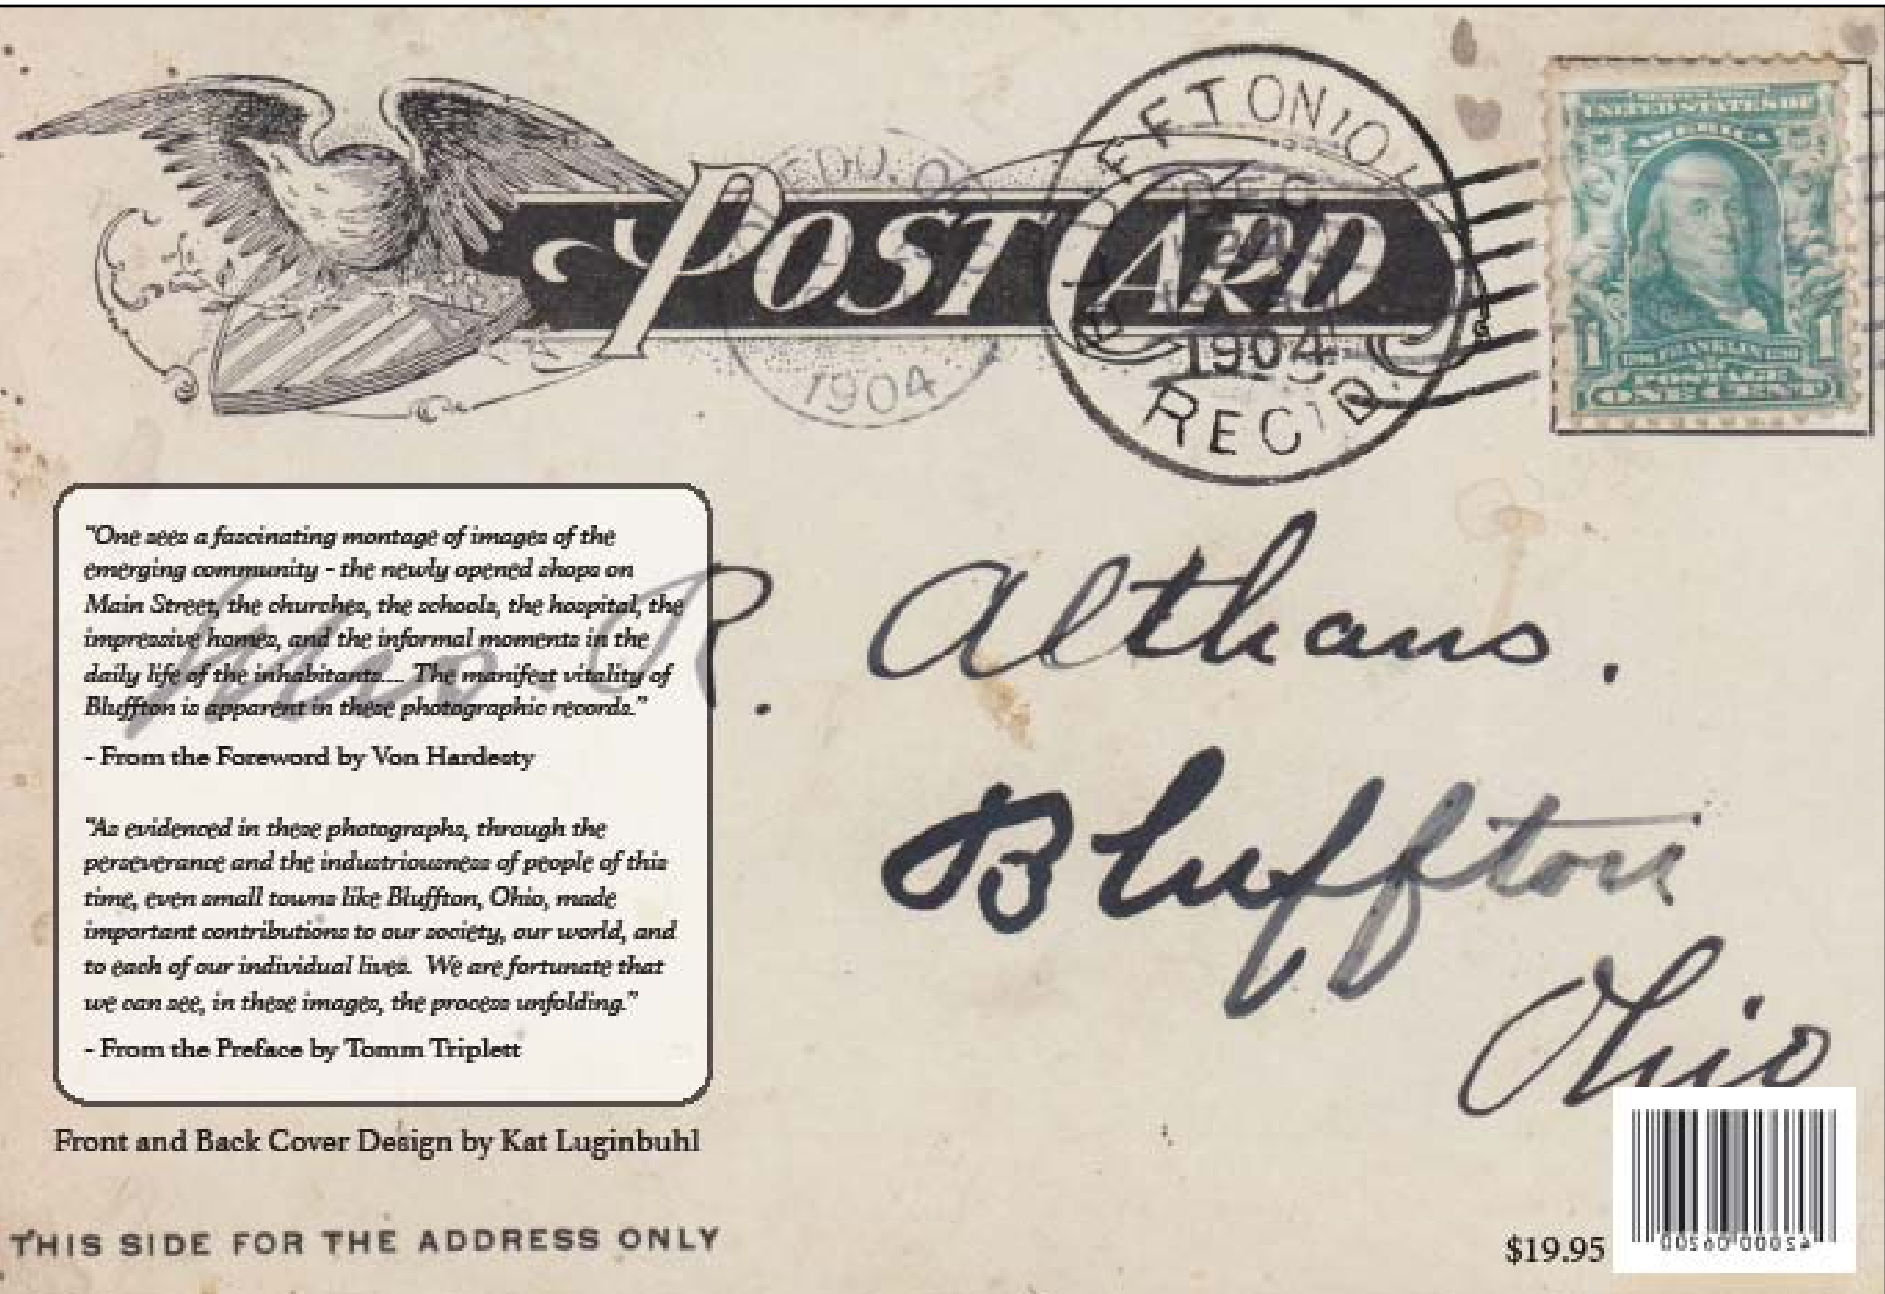 POST CARD
BLUFFTON, O.
DEC
1904
REC'D.
EDU. O
1904
UNITED STATES OF
AMERICA
1 1
FRANKLIN
POSTAGE
ONE CENT
"One sees a fascinating montage of images of the
emerging community - the newly opened shops on
Main Street, the churches, the schools, the hospital, the
impressive homes, and the informal moments in the
daily life of the inhabitants.... The manifest vitality of
Bluffton is apparent in these photographic records."
- From the Foreword by Von Hardesty
"As evidenced in these photographs, through the
perseverance and the industriousness of people of this
time, even small towns like Bluffton, Ohio, made
important contributions to our society, our world, and
to each of our individual lives.  We are fortunate that
we can see, in these images, the process unfolding."
- From the Preface by Tomm Triplett
Mrs. R. Althaus.
Bluffton
Ohio
Front and Back Cover Design by Kat Luginbuhl
THIS SIDE FOR THE ADDRESS ONLY
$19.95